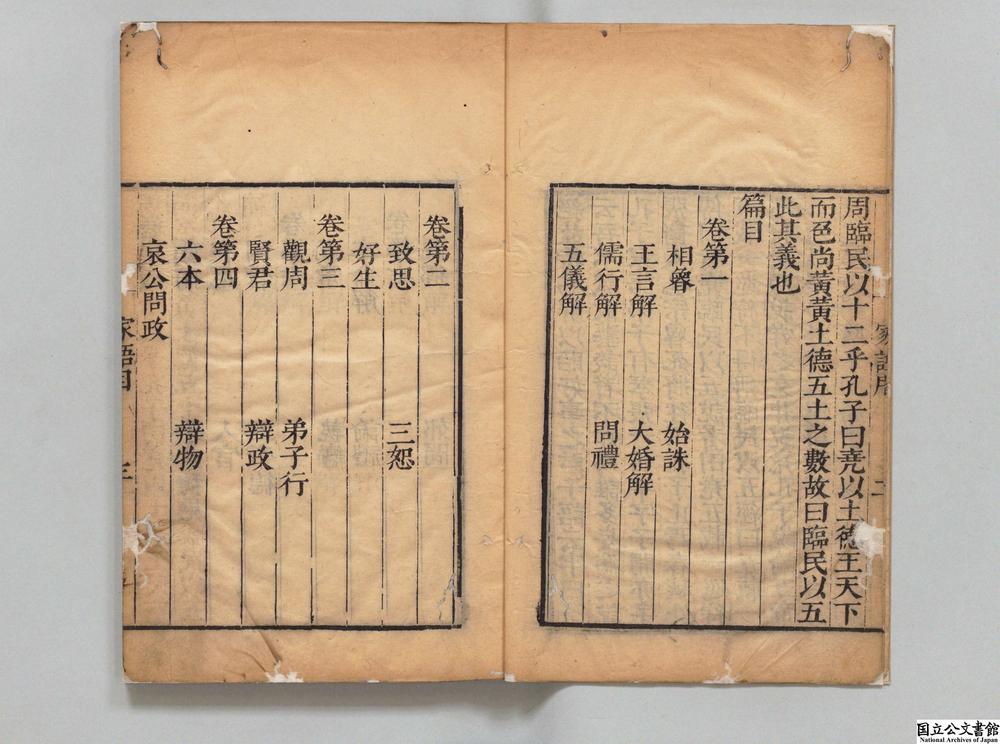 周臨民以十二乎孔子曰堯以土德王天下
而色尚黃黃土德五土之數故曰臨民以五
此其義也
篇目
卷第一
相魯 始誅
王言解 大婚解
儒行解 問禮
五儀解
卷第二
致思 三恕
好生
卷第三
觀周 弟子行
賢君 辯政
卷第四
六本 辯物
哀公問政
家語目 三
国立公文書館
National Archives of Japan